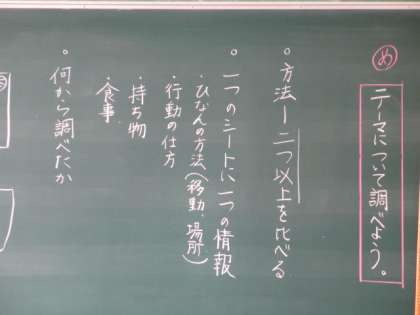 め
テーマについて調べよう。
。方法ー二つ以上を比べる
。一つのシートに、一つの情報
・ひなんの方法(移動、場所)
・行動の仕方
・持ち物
・食事
。何から調べたか